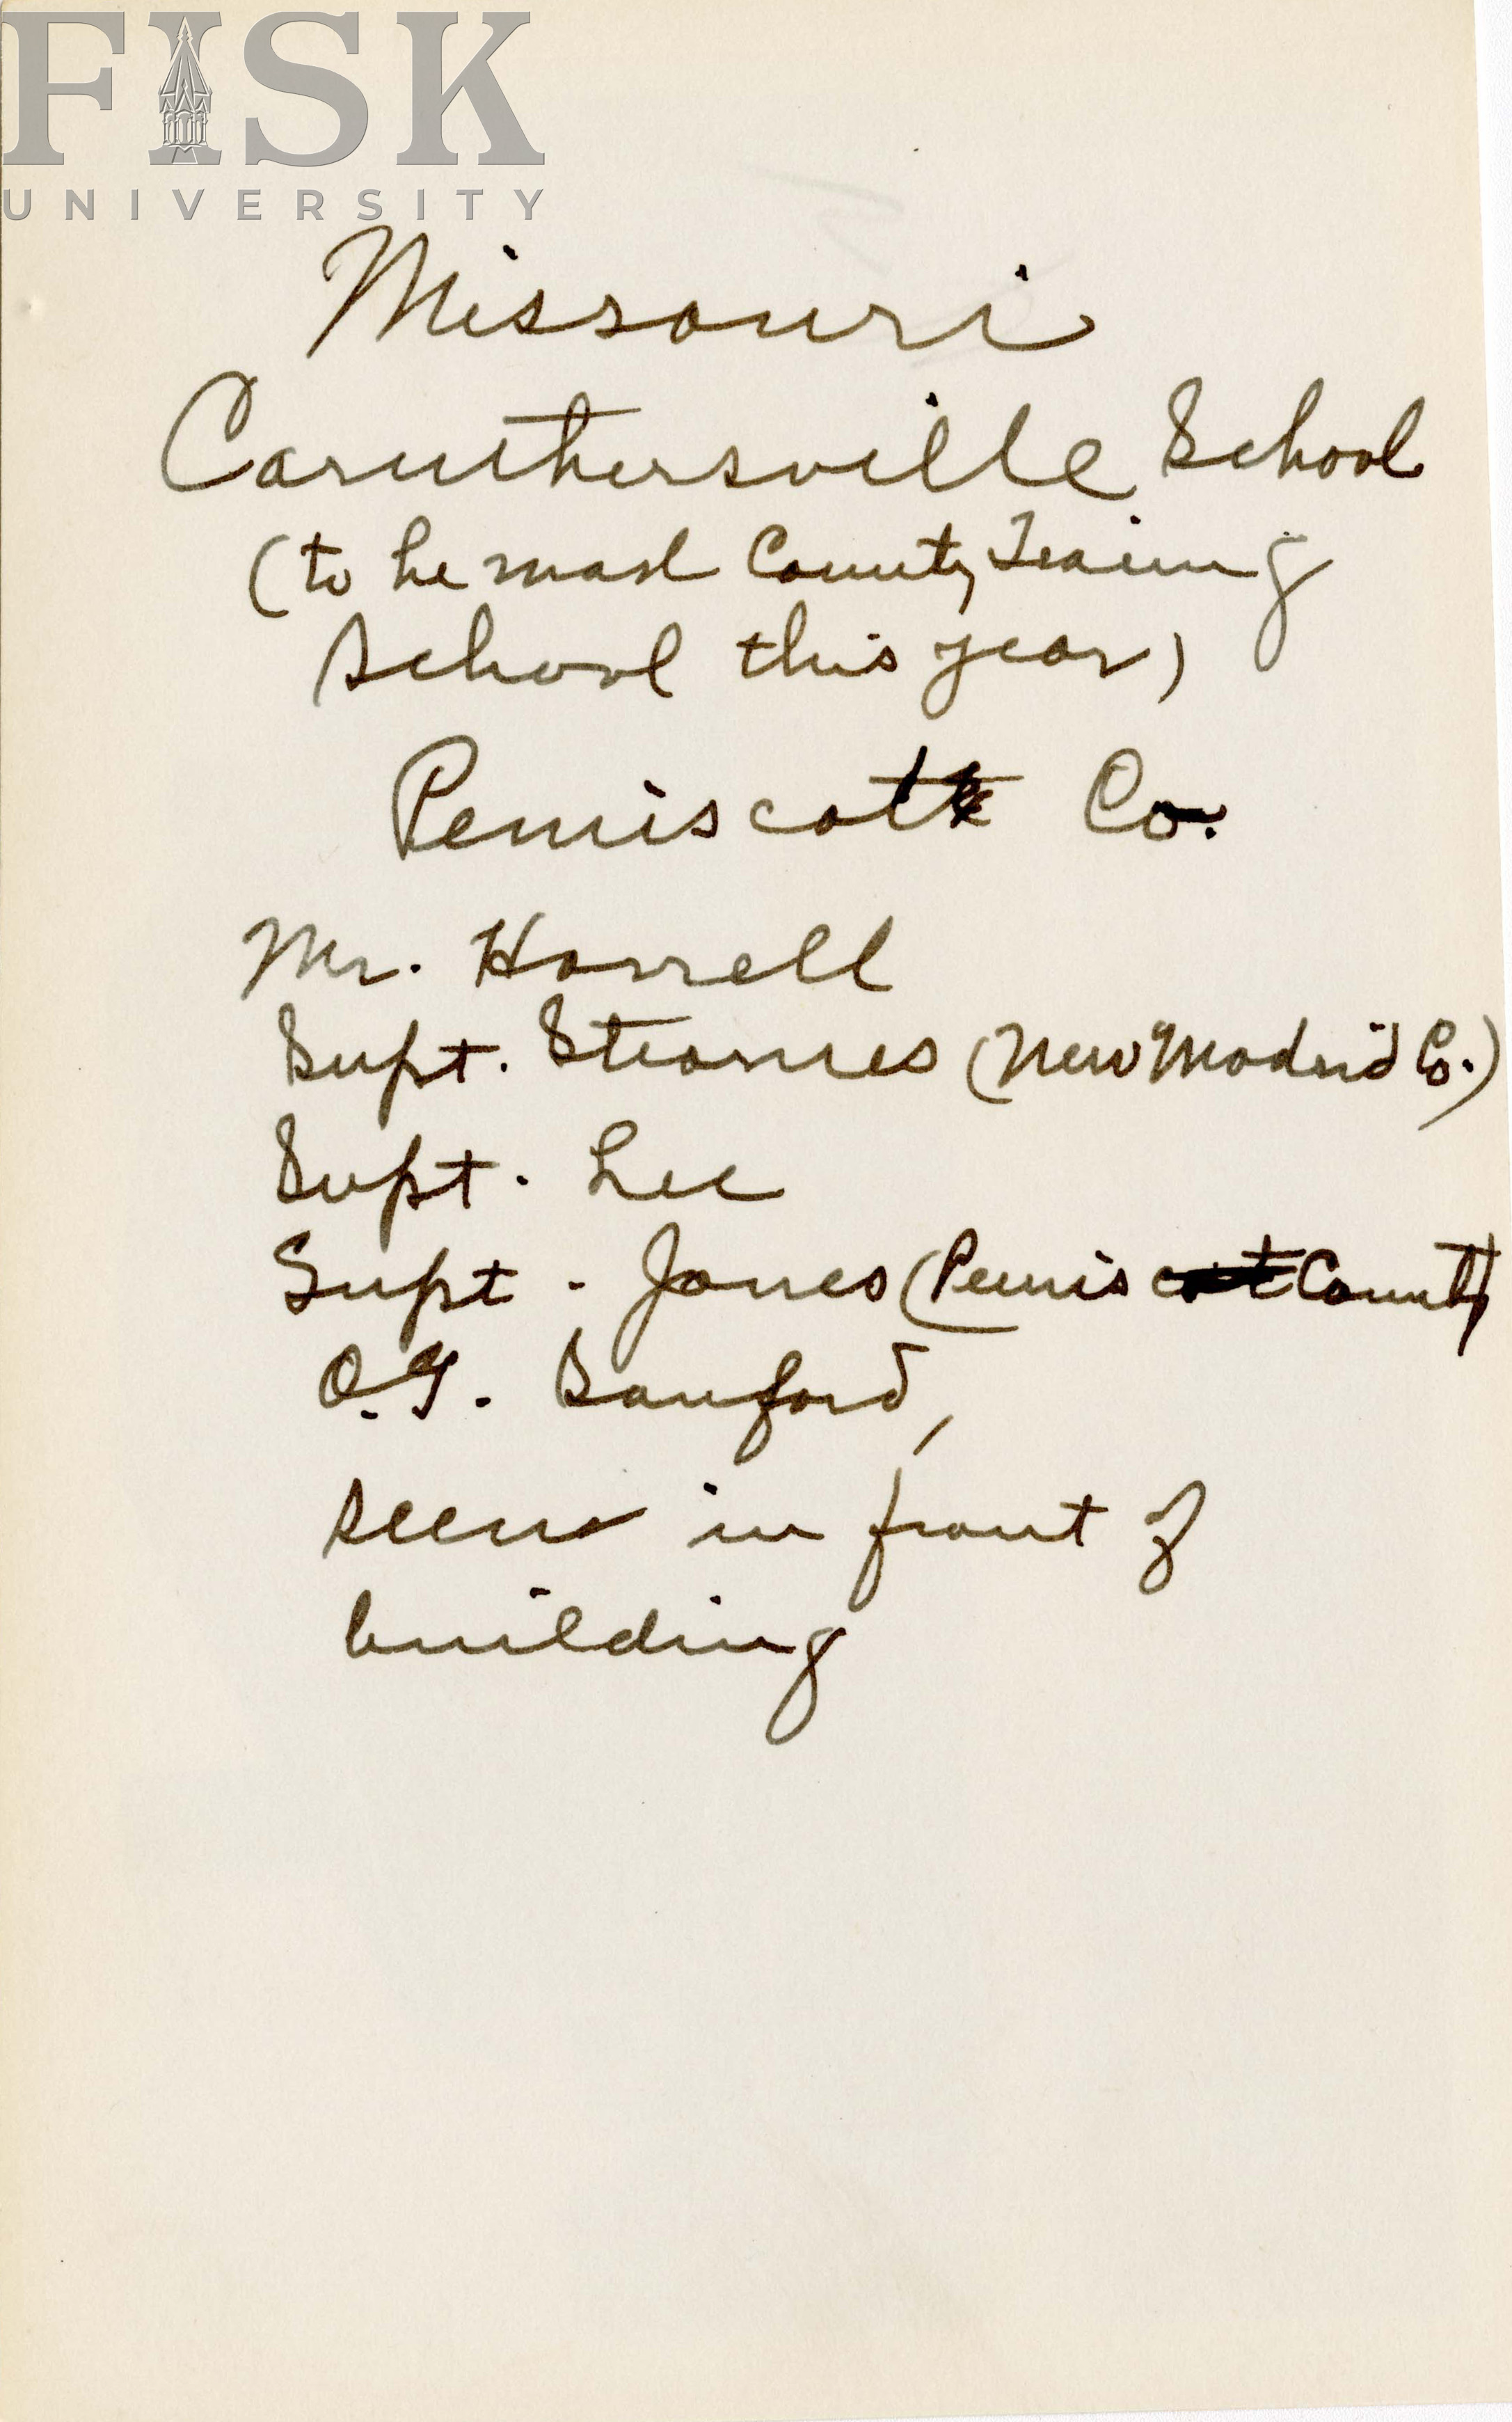 FISK
UNIVERSITY
Missouri
Caruthersville School
(to be made County Training
School this year)
Pemiscot Co.
Mr. Harrell
Supt. Stearnes (New Madrid Co.)
Supt. Lee
Supt. Jones (Pemiscot County)
O.G. Sanford,
seen in front of
building